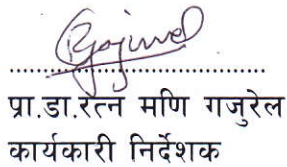 प्रा.डा.रत्न मणि गजुरेल
कार्यकारी निर्देशक